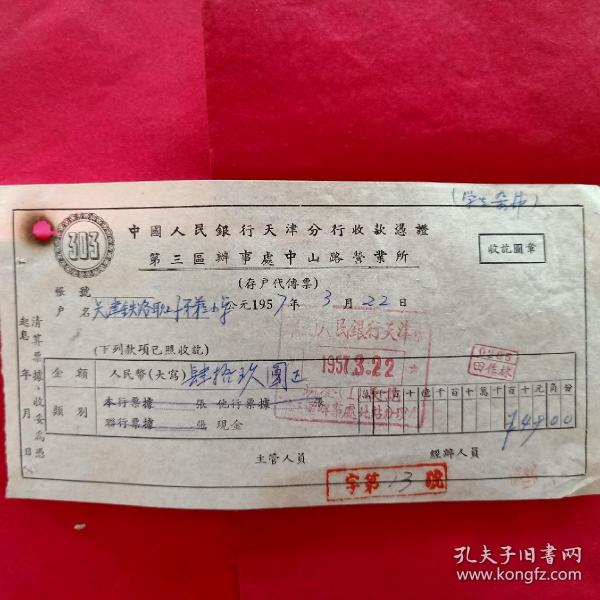 (学生会费)
303
中國人民銀行天津分行收款憑證
第三區辦事處中山路營業所
收訖圖章
(存戶代傳票)
帳號
戶名 天津铁路職工子弟小学 公元1957年3月22日
(下列款項已照收訖)
人民銀行天津
1957.3.22
田作林
金額 人民幣(大寫) 肆拾玖圓正
億千百十萬千百十元角份
¥4900
類別 本行票據 張 他行票據 張
聯行票據 張 現金
主管人員 經辦人員
字第13號
清算票據、收妥為憑
起息 年 月 日
孔夫子旧书网
www.kongfz.com